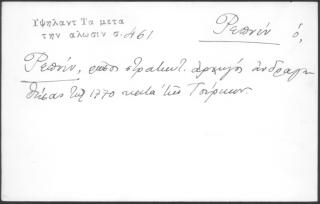 Υψηλαντ Τα μετα
την αλωσιν σ. 461
Ρεπνίν ὁ,
Ρεπνίν, ρῶσσ στρατιωτ. ἀρχηγός ἀνδραγα
θήσας τῷ 1770 κατά τῶν Τούρκων